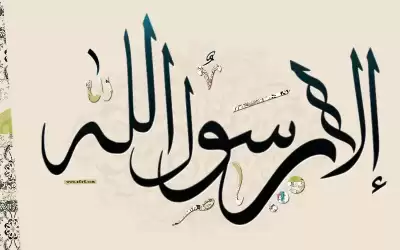 إلا رسول الله